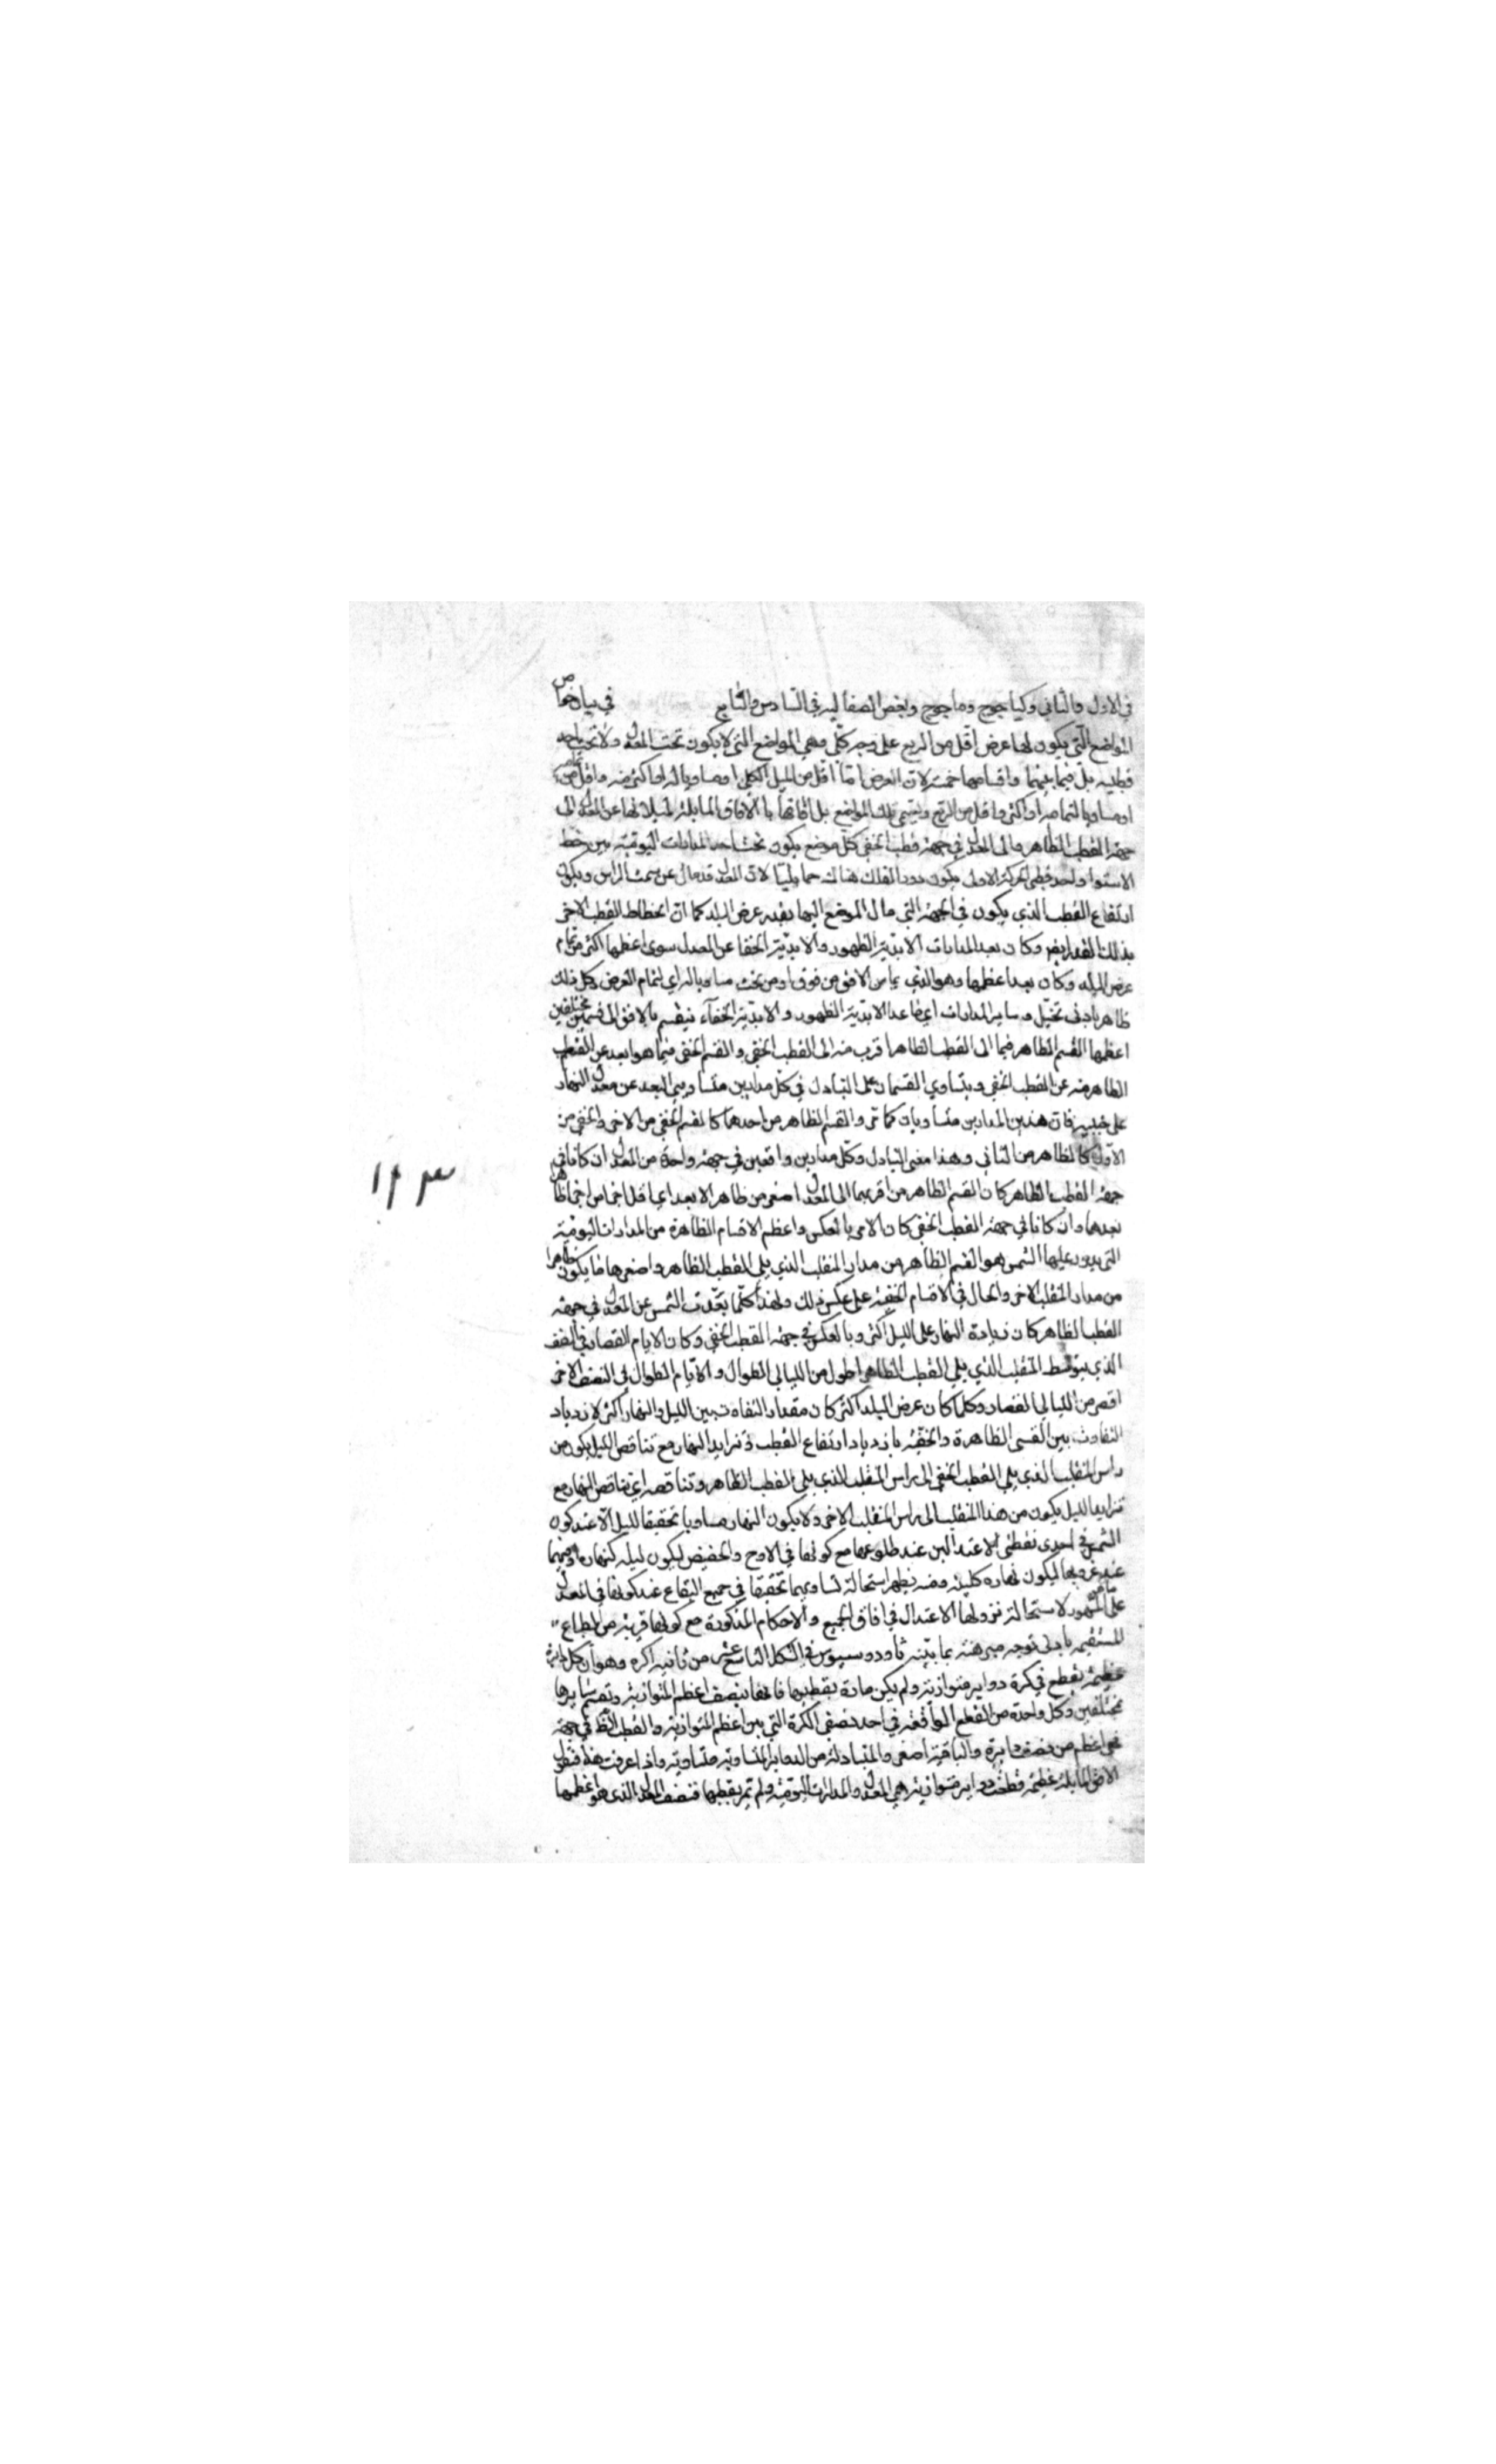 في الاول والثاني وكياجوج وماجوج وبعض الصقالبه في السادس والسابع في بيان خواص
المواضع التي يكون لها عرض اقل من الربع على وجه كلي وهي المواضع التي لا يكون تحت المعدل ولا تحت احد
قطبيه بل فيما بينهما واقسامها خمسة لان العرض اما اقل من الميل الكلي او مساويا له او اكثر منه واقل من تمامه
او مساويا لتمامه او اكثر واقل من الربع ويسمى تلك المواضع بل افاقها بالافاق المايلة لميلانها عن المعدل الى
جهة القطب الظاهر والى المعدل في جهة قطب الخفي كل موضع يكون تحت احد المدارات اليومية بين خط
الاستوا واحد قطبي الحركة الاولى يكون دور الفلك هنالك حمايليا لان المعدل قد مال عن سمت الراس ويكون
ارتفاع القطب الذي يكون في الجهة التي مال الموضع اليها بقدر عرض البلد كما ان انحطاط القطب الاخر
بذلك القدر ايضا وكان بعد المدارات الابدية الظهور والابدية الخفا عن المعدل سوى اعظمها اكثر من تمام
عرض البلد وكان بعد اعظمها وهو الذي يماس الافق من فوق او من تحت مساويا له اي لتمام العرض وكل ذلك
ظاهر بادنى تخيل وساير المدارات اي ما عدا الابدية الظهور والابدية الخفآء ينقسم بالافق الى قسمين مختلفين
اعظمها القسم الظاهر فيما الى القطب الظاهر اقرب منه الى القطب الخفي والقسم الخفي فيما هو ابعد عن القطب
الظاهر منه عن القطب الخفي ويتساوي القسمان على التبادل في كل مدارين متساويي البعد عن معدل النهار
على جنبيه فان هذين المدارين متساويان كما مر والقسم الظاهر من احدهما كالقسم الخفي من الاخر والخفي من
الاول كالظاهر من الثاني وهذا معنى التبادل وكل مدارين واقعين في جهة واحدة من المعدل ان كانا في
جهة القطب الظاهر كان القسم الظاهر من اقربهما الى المعدل اصغر من ظاهر الابعد اي اقل اجزا من اجزا ظاهر
ابعدهما وان كانا في جهة القطب الخفي كان الامر بالعكس واعظم الاقسام الظاهرة من المدارات اليومية
التي يدور عليها الشمس هو القسم الظاهر من مدار المنقلب الذي يلي القطب الظاهر واصغرها ما يكون ظاهرا
من مدار المنقلب الاخر والحال في الاقسام الخفية على عكس ذلك ولهذا كلما بعدت الشمس عن المعدل في جهة
القطب الظاهر كان زيادة النهار على الليل اكثر وبالعكس في جهة القطب الخفي وكان الايام القصار في النصف
الذي يتوسط المنقلب الذي يلي القطب الظاهر اطول من الليالي الطوال والايام الطوال في النصف الاخر
اقصر من الليالي القصار وكلما كان عرض البلد اكثر كان مقدار التفاوت بين الليل والنهار اكثر لازدياد
التفاوت بين القسي الظاهرة والخفية بازدياد ارتفاع القطب وتزايد النهار مع تناقص الليل يكون من
راس المنقلب الذي يلي القطب الخفي الى راس المنقلب الذي يلي القطب الظاهر وتناقصه اي تناقص النهار مع
تزايد الليل يكون من هذا المنقلب الى راس المنقلب الاخر ولا يكون النهار مساويا تحقيقا لليل الا عند كون
الشمس في احدى نقطتي الاعتدالين عند طلوعها مع كونها في الاوج والحضيض ليكون ليله كنهاره او فيهما
عند غروبها ليكون نهاره كليله ومنه يظهر استحالة تساويهما تحقيقا في جميع البقاع عند كونها في المعدل
على ما هو المشهور لاستحالة نزولها الاعتدال في افاق الجميع والاحكام المذكورة مع كونها قريبة من الطباع
المستقيمه بادنى توجه مبرهنة بما بينه ثاودوسيوس في الشكل التاسع عشر من ثانية اكره وهو ان كل دائرة
عظيمة يقطع في كرة دواير متوازية ولم يكن مارة بقطبيها فانها ينصف اعظم المتوازية وتقسم سايرها
بمختلفين وكل واحدة من القطع الواقعة في احد نصفي الكرة التي بين اعظم المتوازية والقطب الظ في جهة
هي اعظم من نصف دايرة والباقية اصغر والمتبادلة من الدواير المتساوية متساوية واذا عرفت هذا فنقول
الافق المايلة عظيمة قطعت دواير متوازية هي المعدل والمدارات اليومية ولم تمر بقطبيها فتنصف المعدل الذي هو اعظمها
١١٣